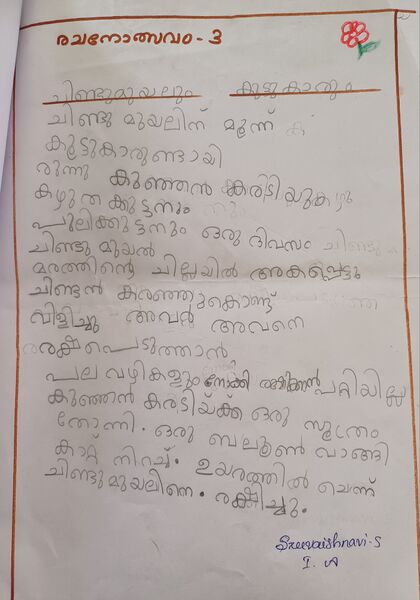 രചനോത്സവം - 3
ചിണ്ടുമുയലും കൂട്ടുകാരും
ചിണ്ടു മുയലിന് മൂന്ന്
കൂട്ടുകാരുണ്ടായി
രുന്നു കുഞ്ഞൻ കരടിയും
കഴുതക്കുട്ടനും
പുലിക്കുട്ടനും ഒരു ദിവസം
ചിണ്ടു മുയൽ
മരത്തിന്റെ ചില്ലയിൽ അകപ്പെട്ടു
ചിണ്ടൻ കരഞ്ഞുകൊണ്ട്
വിളിച്ചു അവർ അവനെ
രക്ഷപെടുത്താൻ
പല വഴികളും നോക്കി പറ്റിയില്ല
കുഞ്ഞൻ കരടിയ്ക്ക് ഒരു സൂത്രം
തോന്നി. ഒരു ബലൂൺ വാങ്ങി
കാറ്റ് നിറച്ച്. ഉയരത്തിൽ ചെന്ന്
ചിണ്ടുമുയലിനെ. രക്ഷിച്ചു.
Sreevaishnavi-S
I. A